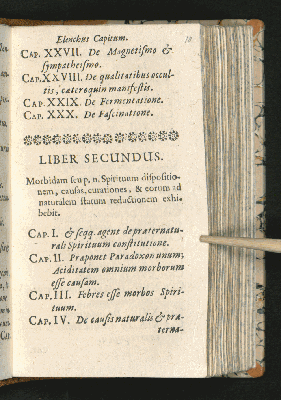 Elenchus Capitum.
CAP. XXVII. De Magnetismo &
sympatheismo.
CAP. XXVIII. De qualitatibus occul-
tis, cæteroquin manifestis.
CAP. XXIX. De Fermentatione.
CAP. XXX. De Fascinatione.
LIBER SECUNDUS.
Morbidam seu p. n. Spirituum dispositio-
nem, causas, curationes, & eorum ad
naturalem statum reductionem exhi-
bebit.
CAP. I. & seqq. agent de præternatu-
rali Spirituum constitutione.
CAP. II. Proponet Paradoxon unum,
Aciditatem omnium morborum
esse causam.
CAP. III. Febres esse morbos Spiri-
tuum.
CAP. IV. De causis naturalis & præ-
terna-